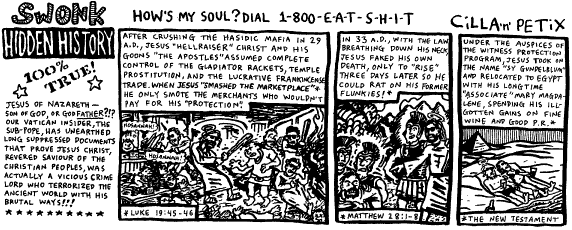 SWONK
HOW'S MY SOUL? DIAL 1-800-E-A-T-S-H-I-T
CiLLA 'n' PETiX
HIDDEN HISTORY
100% TRUE!
JESUS OF NAZARETH—
SON OF GOD, OR GODFATHER?!?
OUR VATICAN INSIDER, THE
SUB-POPE, HAS UNEARTHED
LONG SUPPRESSED DOCUMENTS
THAT PROVE JESUS CHRIST,
REVERED SAVIOUR OF THE
CHRISTIAN PEOPLES, WAS
ACTUALLY A VICIOUS CRIME
LORD WHO TERRORIZED THE
ANCIENT WORLD WITH HIS
BRUTAL WAYS!!!
AFTER CRUSHING THE HASIDIC MAFIA IN 29
A.D., JESUS "HELLRAISER" CHRIST AND HIS
GOONS "THE APOSTLES" ASSUMED COMPLETE
CONTROL OF THE GLADIATOR RACKETS, TEMPLE
PROSTITUTION, AND THE LUCRATIVE FRANKINCENSE
TRADE. WHEN JESUS "SMASHED THE MARKETPLACE"*
HE ONLY SMOTE THE MERCHANTS WHO WOULDN'T
PAY FOR HIS "PROTECTION".
HOSANNAH!
HOSANNAH!
*LUKE 19:45-46
IN 33 A.D., WITH THE LAW
BREATHING DOWN HIS NECK,
JESUS FAKED HIS OWN
DEATH, ONLY TO "RISE"
THREE DAYS LATER SO HE
COULD RAT ON HIS FORMER
FLUNKIES!*
*MATTHEW 28:1-8
UNDER THE AUSPICES OF
THE WITNESS PROTECTION
PROGRAM, JESUS TOOK ON
THE NAME "SY GUMPELBLUM"
AND RELOCATED TO EGYPT
WITH HIS LONGTIME
"ASSOCIATE" MARY MAGDA-
LENE, SPENDING HIS ILL-
GOTTEN GAINS ON FINE
WINE AND GOOD P.R.*
*THE NEW TESTAMENT